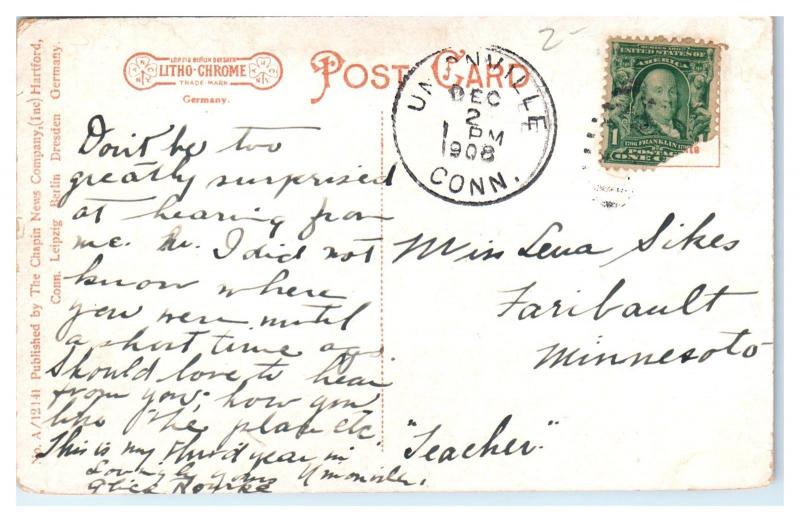 No. A/12141 Published by The Chapin News Company, (Inc) Hartford,
Conn. Leipzig Berlin Dresden Germany.
LEIPZIG BERLIN DRESDEN
LITHO-CHROME
TRADE MARK
Germany.
POST CARD
UNIONVILLE
DEC
2
1 PM
1908
CONN.
2-
SERIES 1902
UNITED STATES OF
AMERICA
1
FRANKLIN
POSTAGE
ONE C
Don't be too
greatly surprised
at hearing from
me. I did not
know where
you were until
a short time ago
Should love to hear
from you; how you
like the place etc.
This is my third year in
Lovingly yours Unionville.
Alice Rourke
Miss Lena Sikes
Faribault
Minnesota
"Teacher"